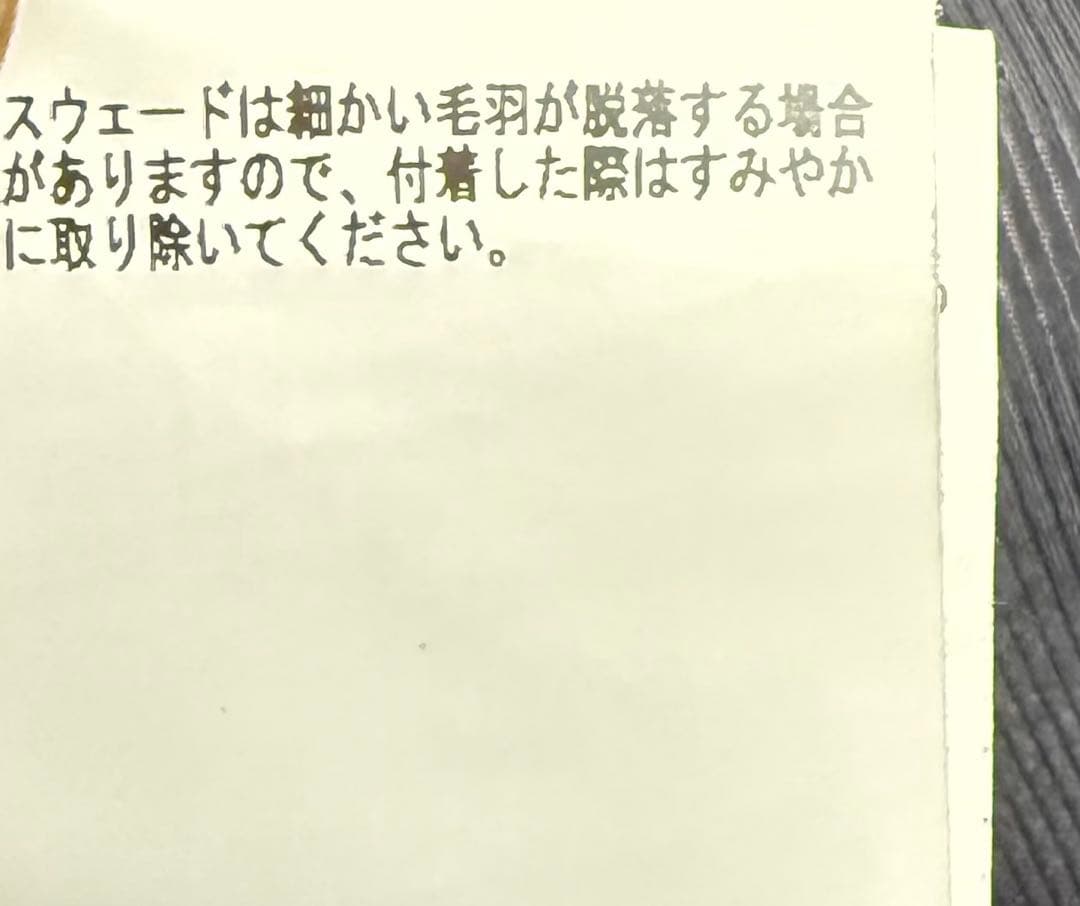 スウェードは細かい毛羽が脱落する場合
がありますので、付着した際はすみやか
に取り除いてください。